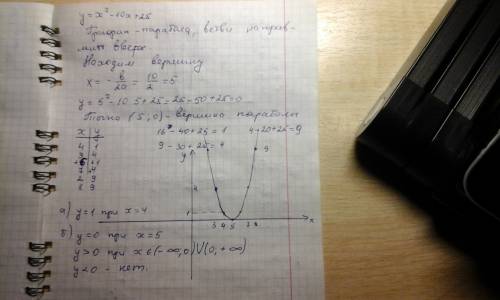 y = x² - 10x + 25
График - парабола, ветви направ-
лены вверх
Находим вершину
x = -b/2a = 10/2 = 5
y = 5² - 10·5 + 25 = 25 - 50 + 25 = 0
(5; 0) - вершина параболы
x y
16 - 40 + 25 = 1
4 - 20 + 25 = 9
9 - 30 + 25 = 4
y
9
4
1
3 4 5
x
а) y = 1 при x = 4
б) y = 0 при x = 5
y > 0 при x ∈ (-∞; 0) ∪ (0; +∞)
y < 0 - нет.